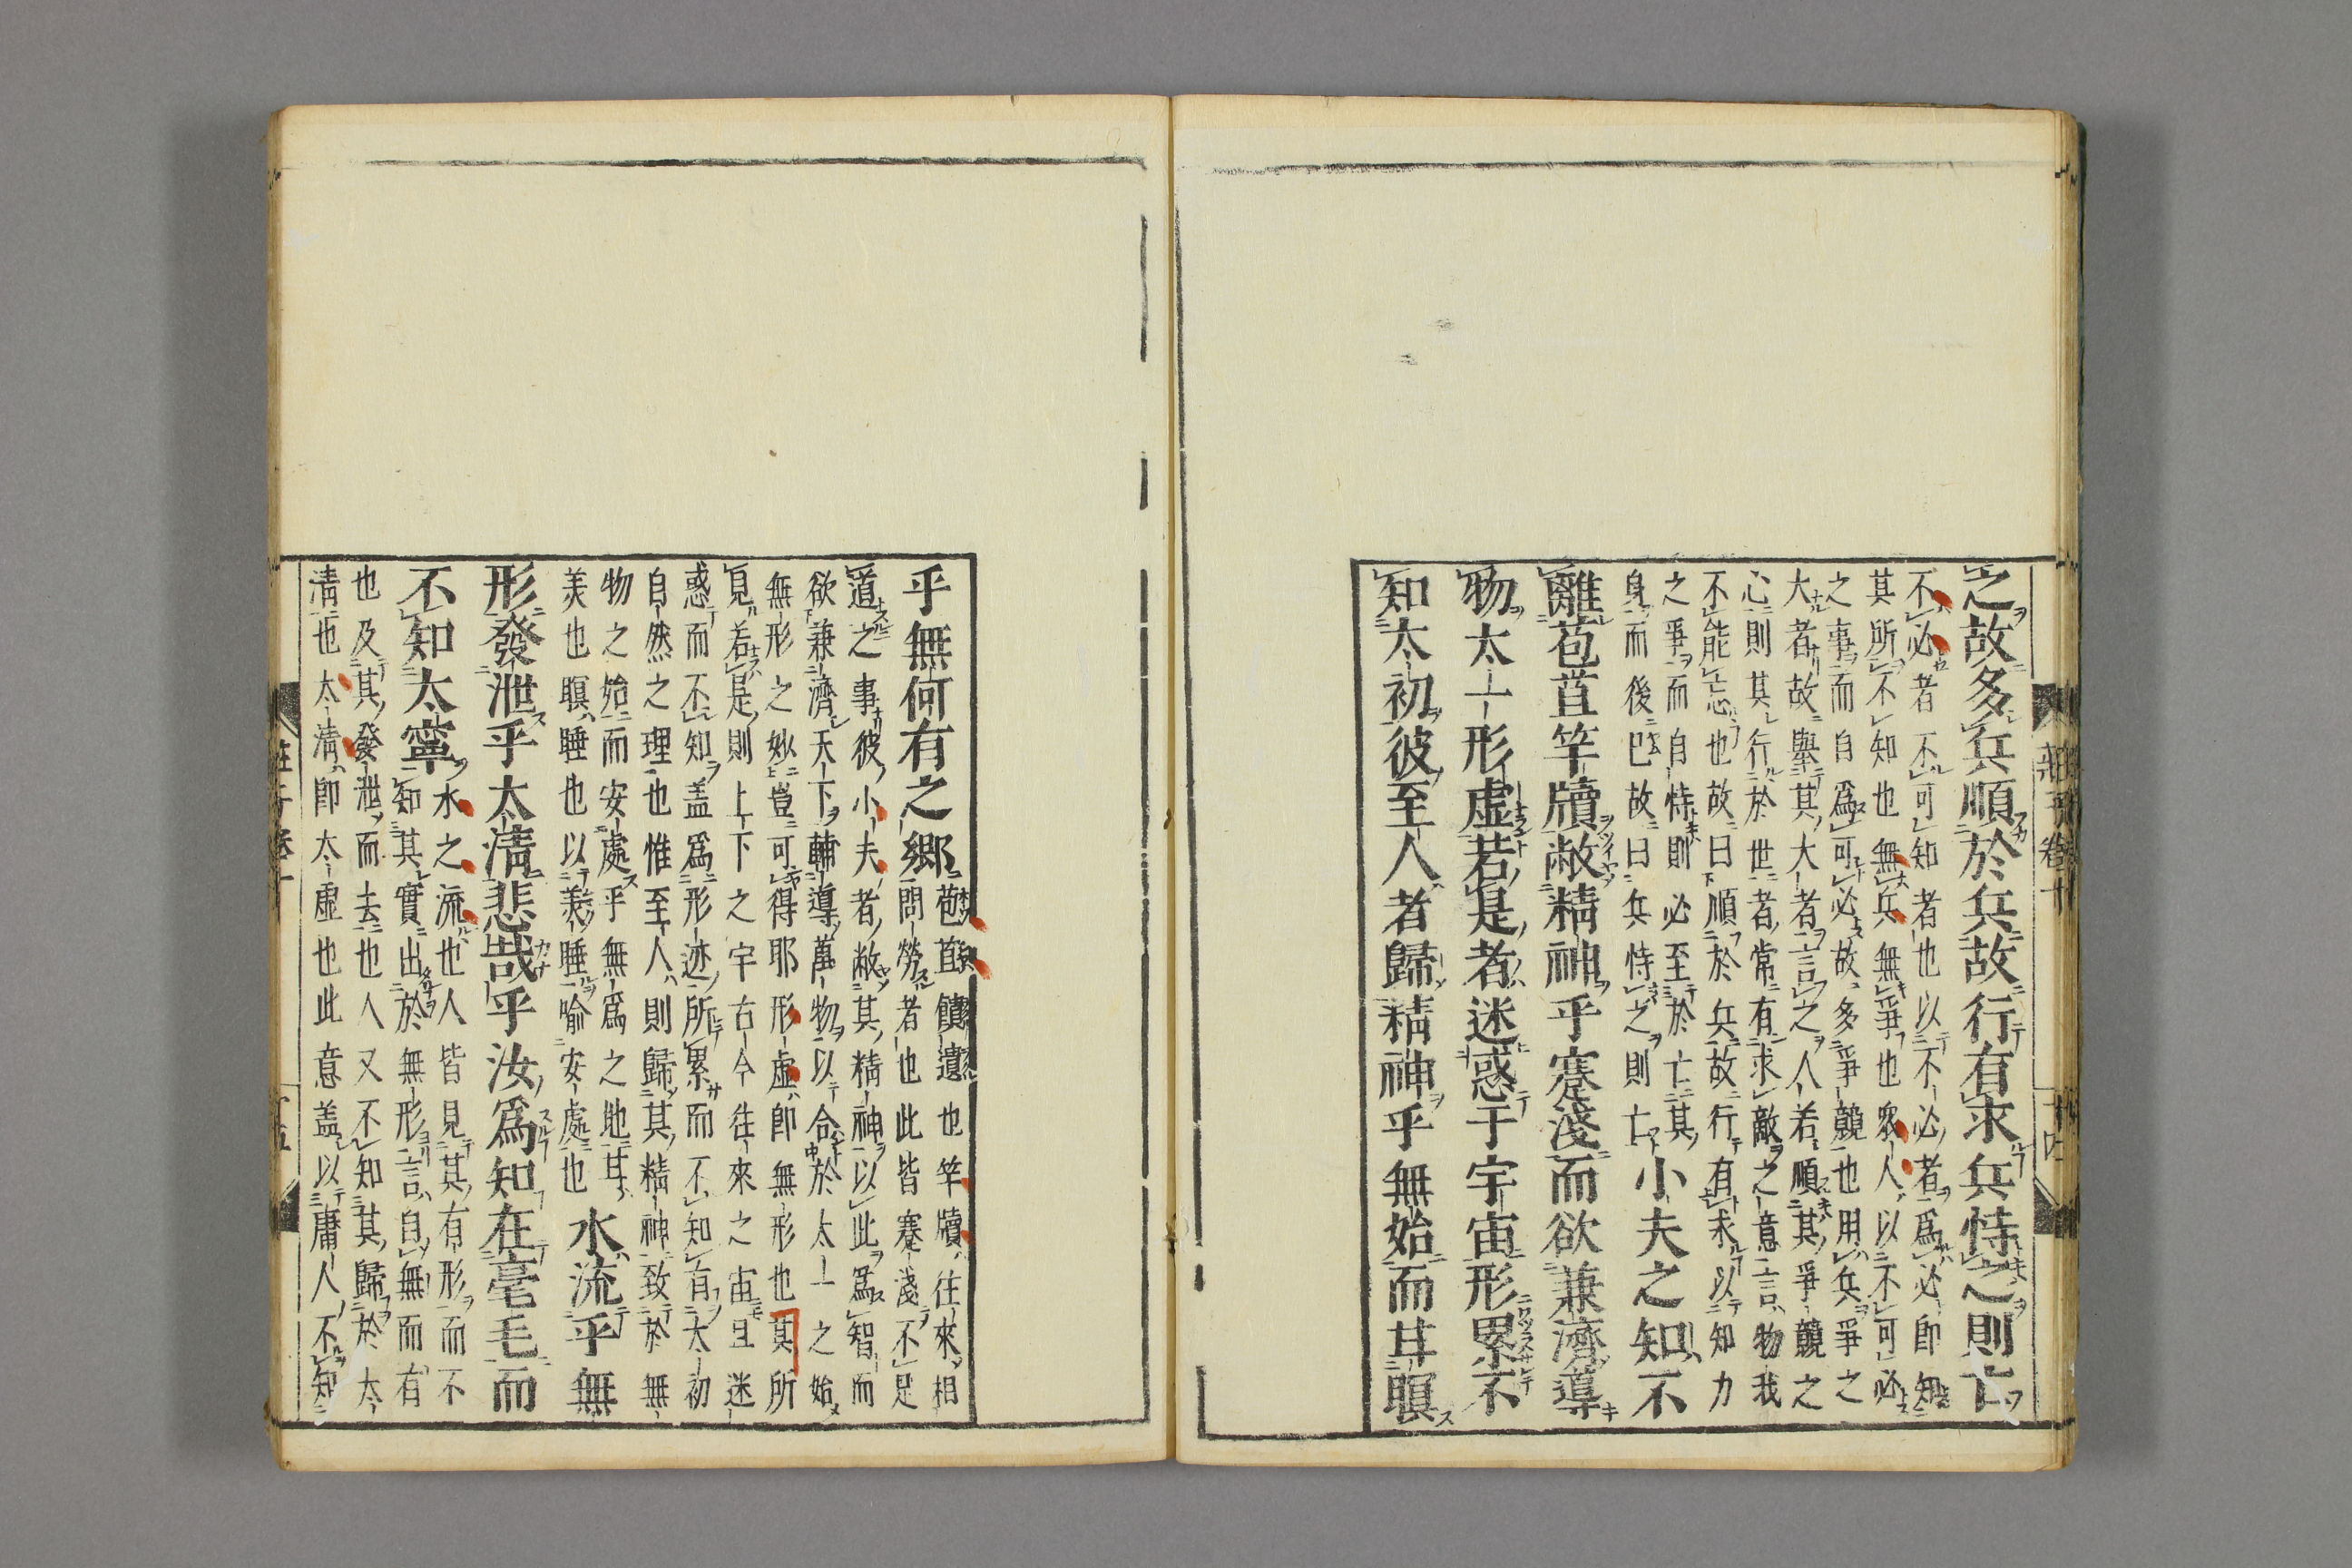 之故多兵順於兵故行有求兵恃之則亡
不必者不可知者也以不必者爲必即知
其所不知也無兵無爭也衆人以不可必
之事而自爲可必故多爭競也用兵爭之
大者故舉其大者言之人若順其爭競之
心則其行於世者常有求敵之意言物我
不能忘也故曰順於兵故行有求以知力
之爭而自恃則必至於亡其
身而後已故曰兵恃之則亡
小夫之知不
離苞苴竿牘敝精神乎蹇淺而欲兼濟導
物太一形虛若是者迷惑于宇宙形累不
知太初彼至人者歸精神乎無始而甘瞑
乎無何有之鄉
苞苴饋遺也竿牘往來相
問勞者也此皆蹇淺不足
道之事彼小夫者敝其精神以此爲智而
欲兼濟天下輔導萬物以合於太一之始
無形之妙豈可得耶形虛即無形也其所
見若是則上下之宇右今往來之宙且迷
惑而不知盖爲形迹所累而不知有太初
自然之理也惟至人則歸其精神致於無
物之始而安處乎無爲之地耳
美也瞑睡也以美睡喻安處也
水流乎無
形發泄乎太清悲哉乎汝爲知在毫毛而
不知太寧
水之流也人皆見其有形而不
知其實出於無形言自無而有
也及其發泄而去也人又不知其歸於太
清也太清即太虛也此意盖以庸人不知
莊子卷十
十四
莊子卷十
十五